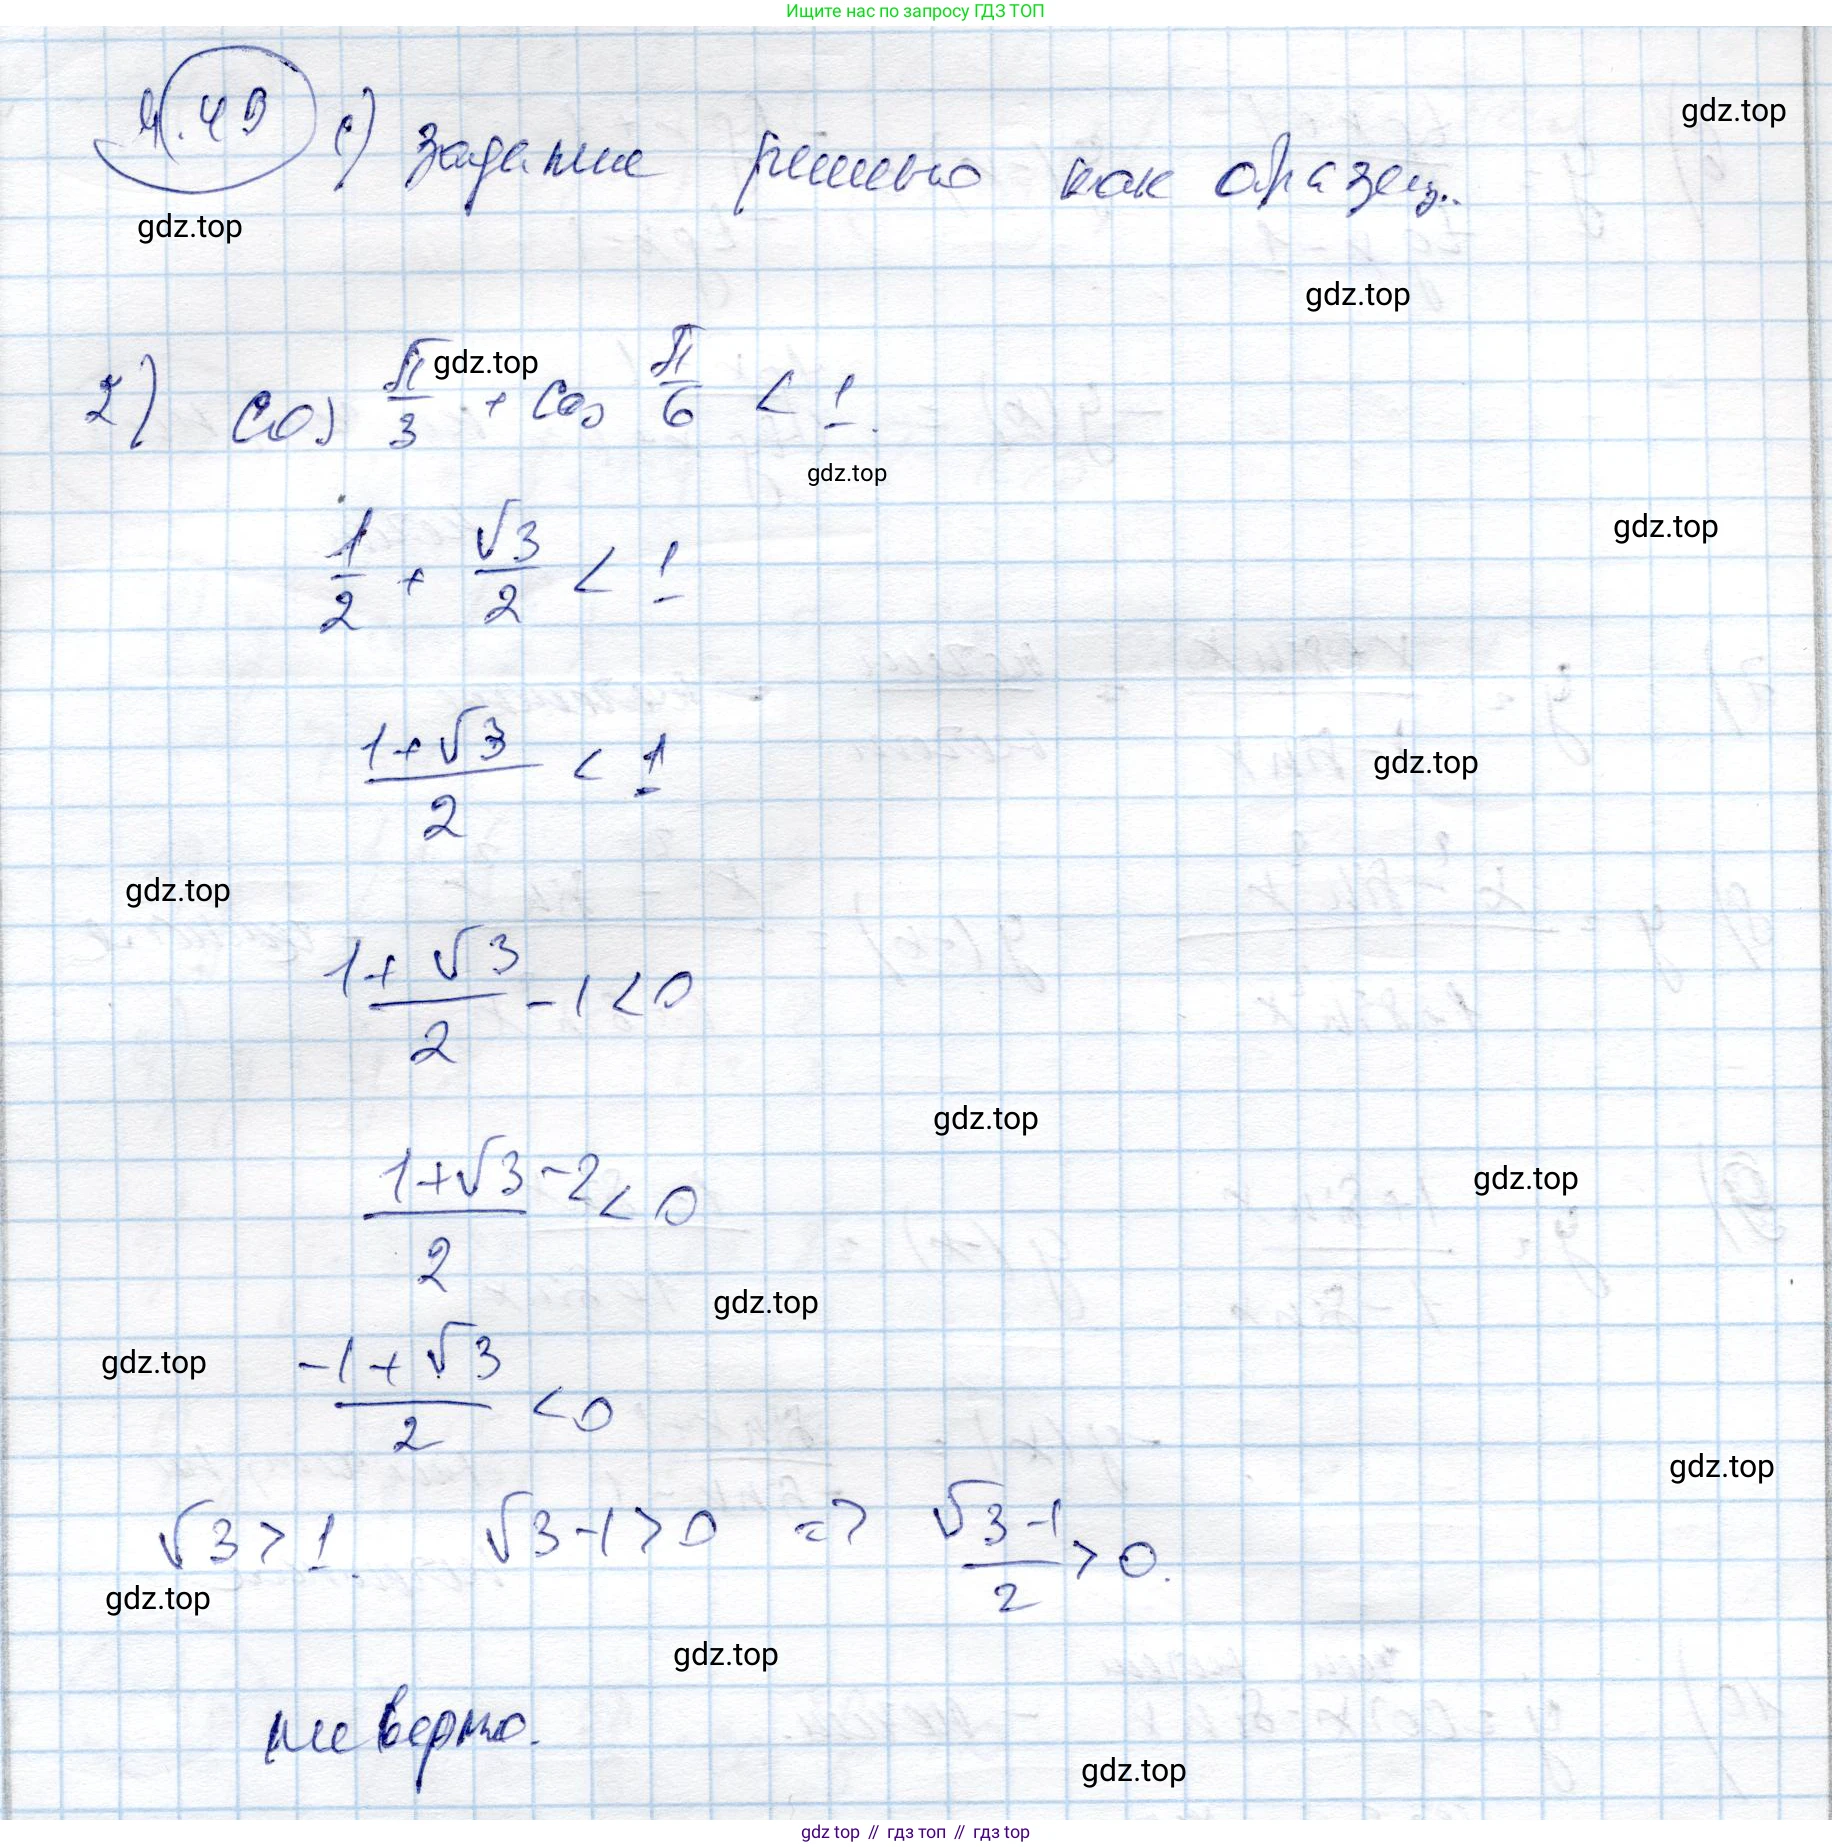 Ищите нас по запросу ГДЗ ТОП
4.49 1) задание решено как образец.
gdz.top
gdz.top
gdz.top
2) cos π/3 + cos π/6 < 1.
gdz.top
gdz.top
1/2 + √3/2 < 1
gdz.top
(1+√3)/2 < 1
gdz.top
gdz.top
(1+√3)/2 - 1 < 0
gdz.top
(1+√3-2)/2 < 0
gdz.top
gdz.top
(-1+√3)/2 < 0
gdz.top
gdz.top
√3 > 1. √3-1 > 0 => (√3-1)/2 > 0.
gdz.top
gdz.top
неверно.
gdz.top
gdz top // гдз топ // гдз top